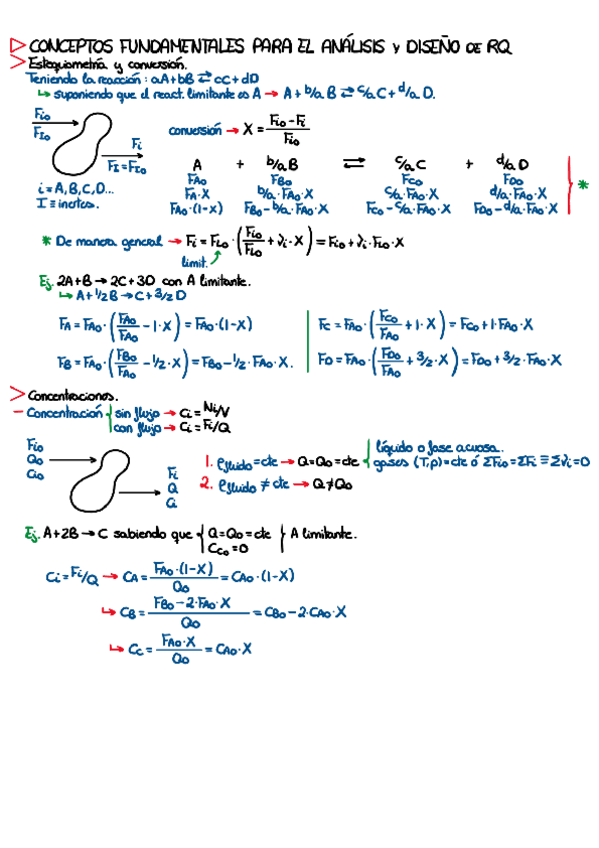 > CONCEPTOS FUNDAMENTALES PARA EL ANÁLISIS Y DISEÑO DE RQ
> Estequiometría y conversión.
Teniendo la reacción: aA+bB ⇄ cC+dD
↳ suponiendo que el react. limitante es A → A + b/a B ⇄ c/a C + d/a D.
Fio
FIo
Fi
FI=FIo
i = A, B, C, D...
I ≡ inertes.
conversión → X = (Fio - Fi)/Fio
A + b/a B ⇄ c/a C + d/a D
FAo FBo FCo FDo
FA·X b/a·FAo·X c/a·FAo·X d/a·FAo·X
FAo·(1-X) FBo - b/a·FAo·X FCo - c/a·FAo·X FDo - d/a·FAo·X *
* De manera general → Fi = FLo · (Fio/FLo + νi·X) = Fio + νi·FLo·X
limit.
Ej. 2A+B → 2C+3D con A limitante.
↳ A + 1/2 B → C + 3/2 D
FA = FAo·(FAo/FAo - 1·X) = FAo·(1-X)
FB = FAo·(FBo/FAo - 1/2·X) = FBo - 1/2·FAo·X.
FC = FAo·(FCo/FAo + 1·X) = FCo + 1·FAo·X
FD = FAo·(FDo/FAo + 3/2·X) = FDo + 3/2·FAo·X
> Concentraciones.
- Concentración { sin flujo → Ci = Ni/V
con flujo → Ci = Fi/Q
Fio
Qo
Cio
Fi
Q
Ci
1. ρfluido = cte → Q = Qo = cte { líquido o fase acuosa.
gases (T,p) = cte ó ΣFio = ΣFi ≡ Σνi = 0
2. ρfluido ≠ cte → Q ≠ Qo
Ej. A+2B → C sabiendo que { Q = Qo = cte
CCo = 0 } A limitante.
Ci = Fi/Q → CA = FAo·(1-X)/Qo = CAo·(1-X)
↳ CB = (FBo - 2·FAo·X)/Qo = CBo - 2·CAo·X
↳ CC = FAo·X/Qo = CAo·X